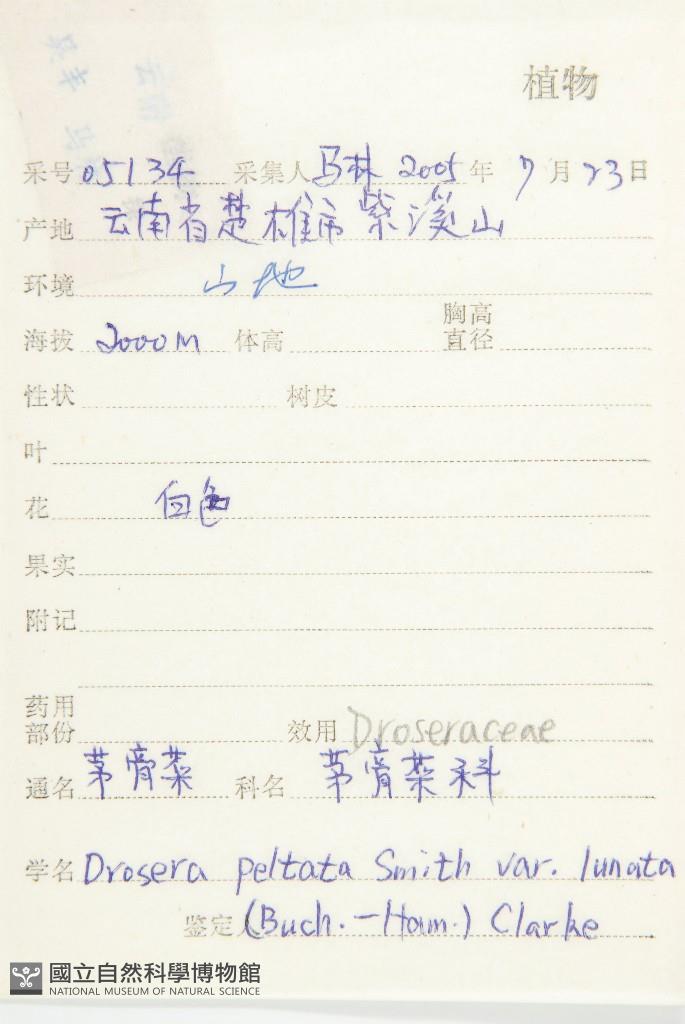 植物
采号 05134 采集人 马林 2005 年 7 月 23 日
产地 云南省楚雄市紫溪山
环境 山地
海拔 2000m 体高 胸高直径
性状 树皮
叶
花 白色
果实
附记
药用部份 效用 Droseraceae
通名 茅膏菜 科名 茅膏菜科
学名 Drosera peltata Smith var. lunata
鉴定人 (Buch.-Ham.) Clarke
國立自然科學博物館
NATIONAL MUSEUM OF NATURAL SCIENCE